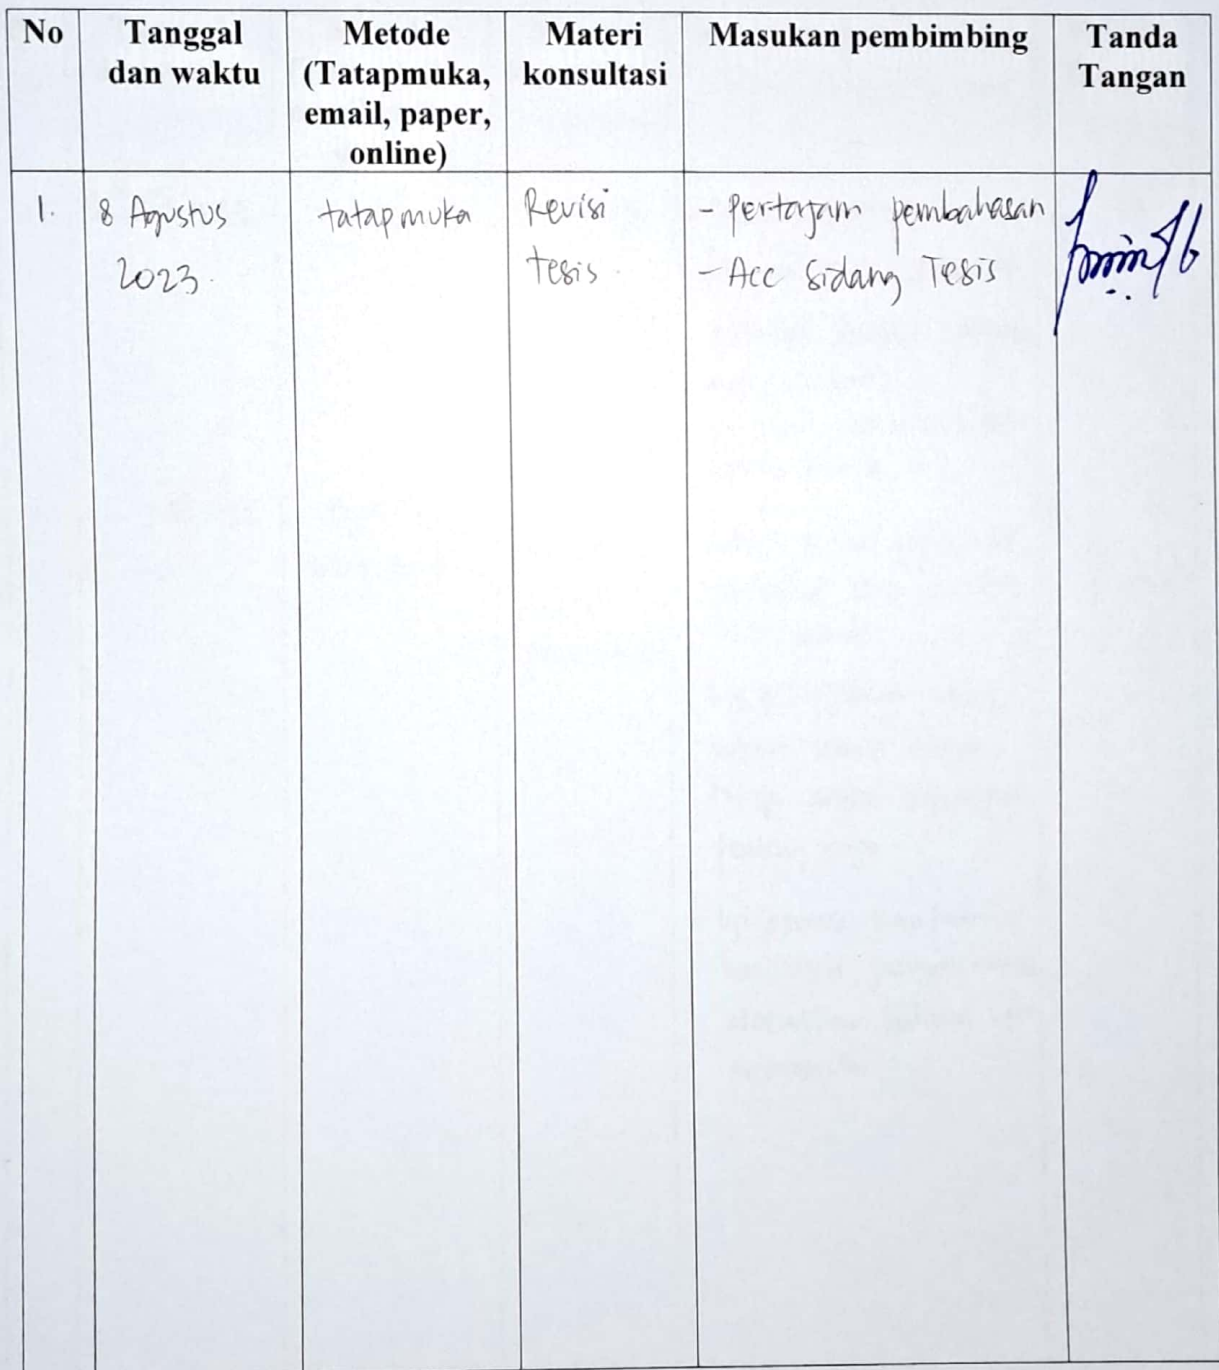 No Tanggal dan waktu Metode (Tatapmuka, email, paper, online) Materi konsultasi Masukan pembimbing Tanda Tangan
1. 8 Agustus 2023. tatapmuka Revisi tesis. - Pertajam pembahasan
- Acc Sidang Tesis